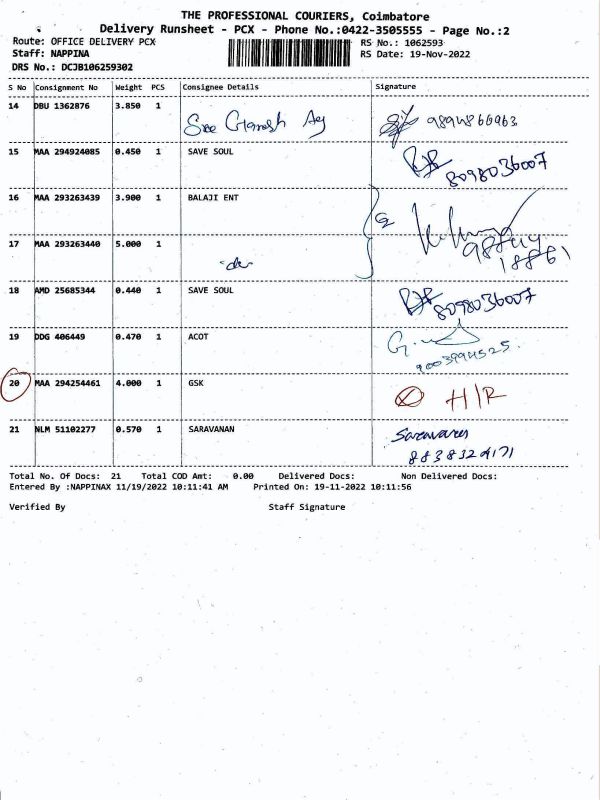 THE PROFESSIONAL COURIERS, Coimbatore
Delivery Runsheet - PCX - Phone No.:0422-3505555 - Page No.:2
Route: OFFICE DELIVERY PCX RS No.: 1062593
Staff: NAPPINA RS Date: 19-Nov-2022
DRS No.: DCJB106259302
S No Consignment No Weight PCS Consignee Details Signature
14 DBU 1362876 3.850 1 Sree Ganesh Ag 9894866963
15 MAA 294924085 0.450 1 SAVE SOUL 8098036007
16 MAA 293263439 3.900 1 BALAJI ENT
17 MAA 293263440 5.000 1 -do-
18 AMD 25685344 0.440 1 SAVE SOUL 8098036007
19 DDG 406449 0.470 1 ACOT 9003994525
20 MAA 294254461 4.000 1 GSK H/R
21 NLM 51102277 0.570 1 SARAVANAN Saravanan
8838324171
Total No. Of Docs: 21 Total COD Amt: 0.00 Delivered Docs: Non Delivered Docs:
Entered By :NAPPINAX 11/19/2022 10:11:41 AM Printed On: 19-11-2022 10:11:56
Verified By Staff Signature